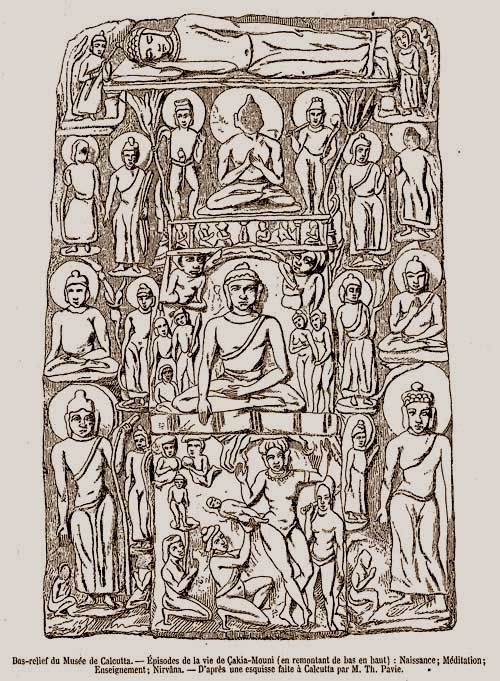 Bas-relief du Musée de Calcutta. — Épisodes de la vie de Çakia-Mouni (en remontant de bas en haut) : Naissance; Méditation;
Enseignement; Nirvâna. — D'après une esquisse faite à Calcutta par M. Th. Pavie.